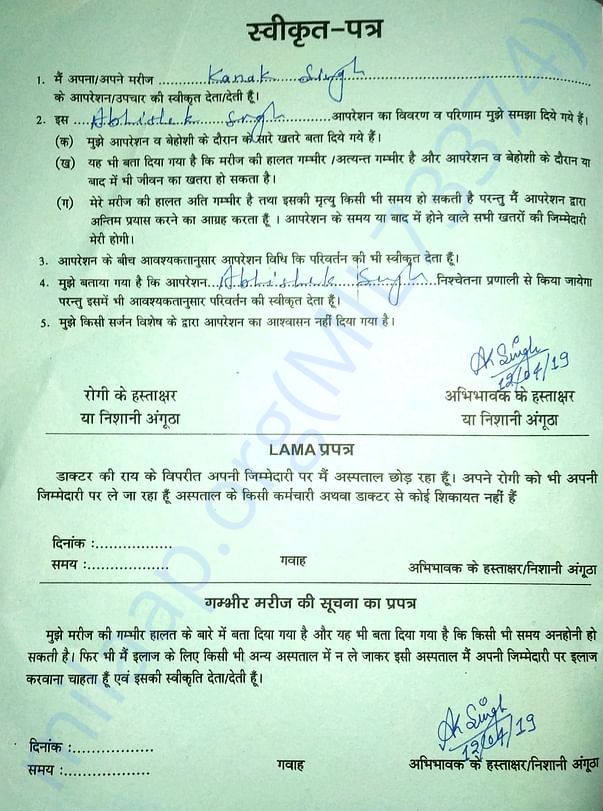 स्वीकृत-पत्र
1. मैं अपना/अपने मरीज ........Kanak Singh........
के आपरेशन/उपचार की स्वीकृत देता/देती हूँ।
2. इस ...Abhishek Singh...आपरेशन का विवरण व परिणाम मुझे समझा दिये गये हैं।
(क) मुझे आपरेशन व बेहोशी के दौरान के सारे खतरे बता दिये गये हैं।
(ख) यह भी बता दिया गया है कि मरीज की हालत गम्भीर /अत्यन्त गम्भीर है और आपरेशन व बेहोशी के दौरान या
बाद में भी जीवन का खतरा हो सकता है।
(ग) मेरे मरीज की हालत अति गम्भीर है तथा इसकी मृत्यु किसी भी समय हो सकती है परन्तु मैं आपरेशन द्वारा
अन्तिम प्रयास करने का आग्रह करता हूँ । आपरेशन के समय या बाद में होने वाले सभी खतरों की जिम्मेदारी
मेरी होगी।
3. आपरेशन के बीच आवश्यकतानुसार आपरेशन विधि कि परिवर्तन की भी स्वीकृत देता हूँ।
4. मुझे बताया गया है कि आपरेशन...Abhishek Singh...निश्चेतना प्रणाली से किया जायेगा
परन्तु इसमें भी आवश्यकतानुसार परिवर्तन की स्वीकृत देता हूँ।
5. मुझे किसी सर्जन विशेष के द्वारा आपरेशन का आश्वासन नहीं दिया गया है।
AK Singh
12/04/19
रोगी के हस्ताक्षर अभिभावक के हस्ताक्षर
या निशानी अंगूठा या निशानी अंगूठा
LAMA प्रपत्र
डाक्टर की राय के विपरीत अपनी जिम्मेदारी पर मैं अस्पताल छोड़ रहा हूँ। अपने रोगी को भी अपनी
जिम्मेदारी पर ले जा रहा हूँ अस्पताल के किसी कर्मचारी अथवा डाक्टर से कोई शिकायत नहीं हैं
दिनांक :...............
समय :................. गवाह अभिभावक के हस्ताक्षर/निशानी अंगूठा
गम्भीर मरीज की सूचना का प्रपत्र
मुझे मरीज की गम्भीर हालत के बारे में बता दिया गया है और यह भी बता दिया गया है कि किसी भी समय अनहोनी हो
सकती है। फिर भी मैं इलाज के लिए किसी भी अन्य अस्पताल में न ले जाकर इसी अस्पताल मैं अपनी जिम्मेदारी पर इलाज
करवाना चाहता हूँ एवं इसकी स्वीकृति देता/देती हूँ।
AK Singh
12/04/19
दिनांक :..................
समय :................... गवाह अभिभावक के हस्ताक्षर/निशानी अंगूठा